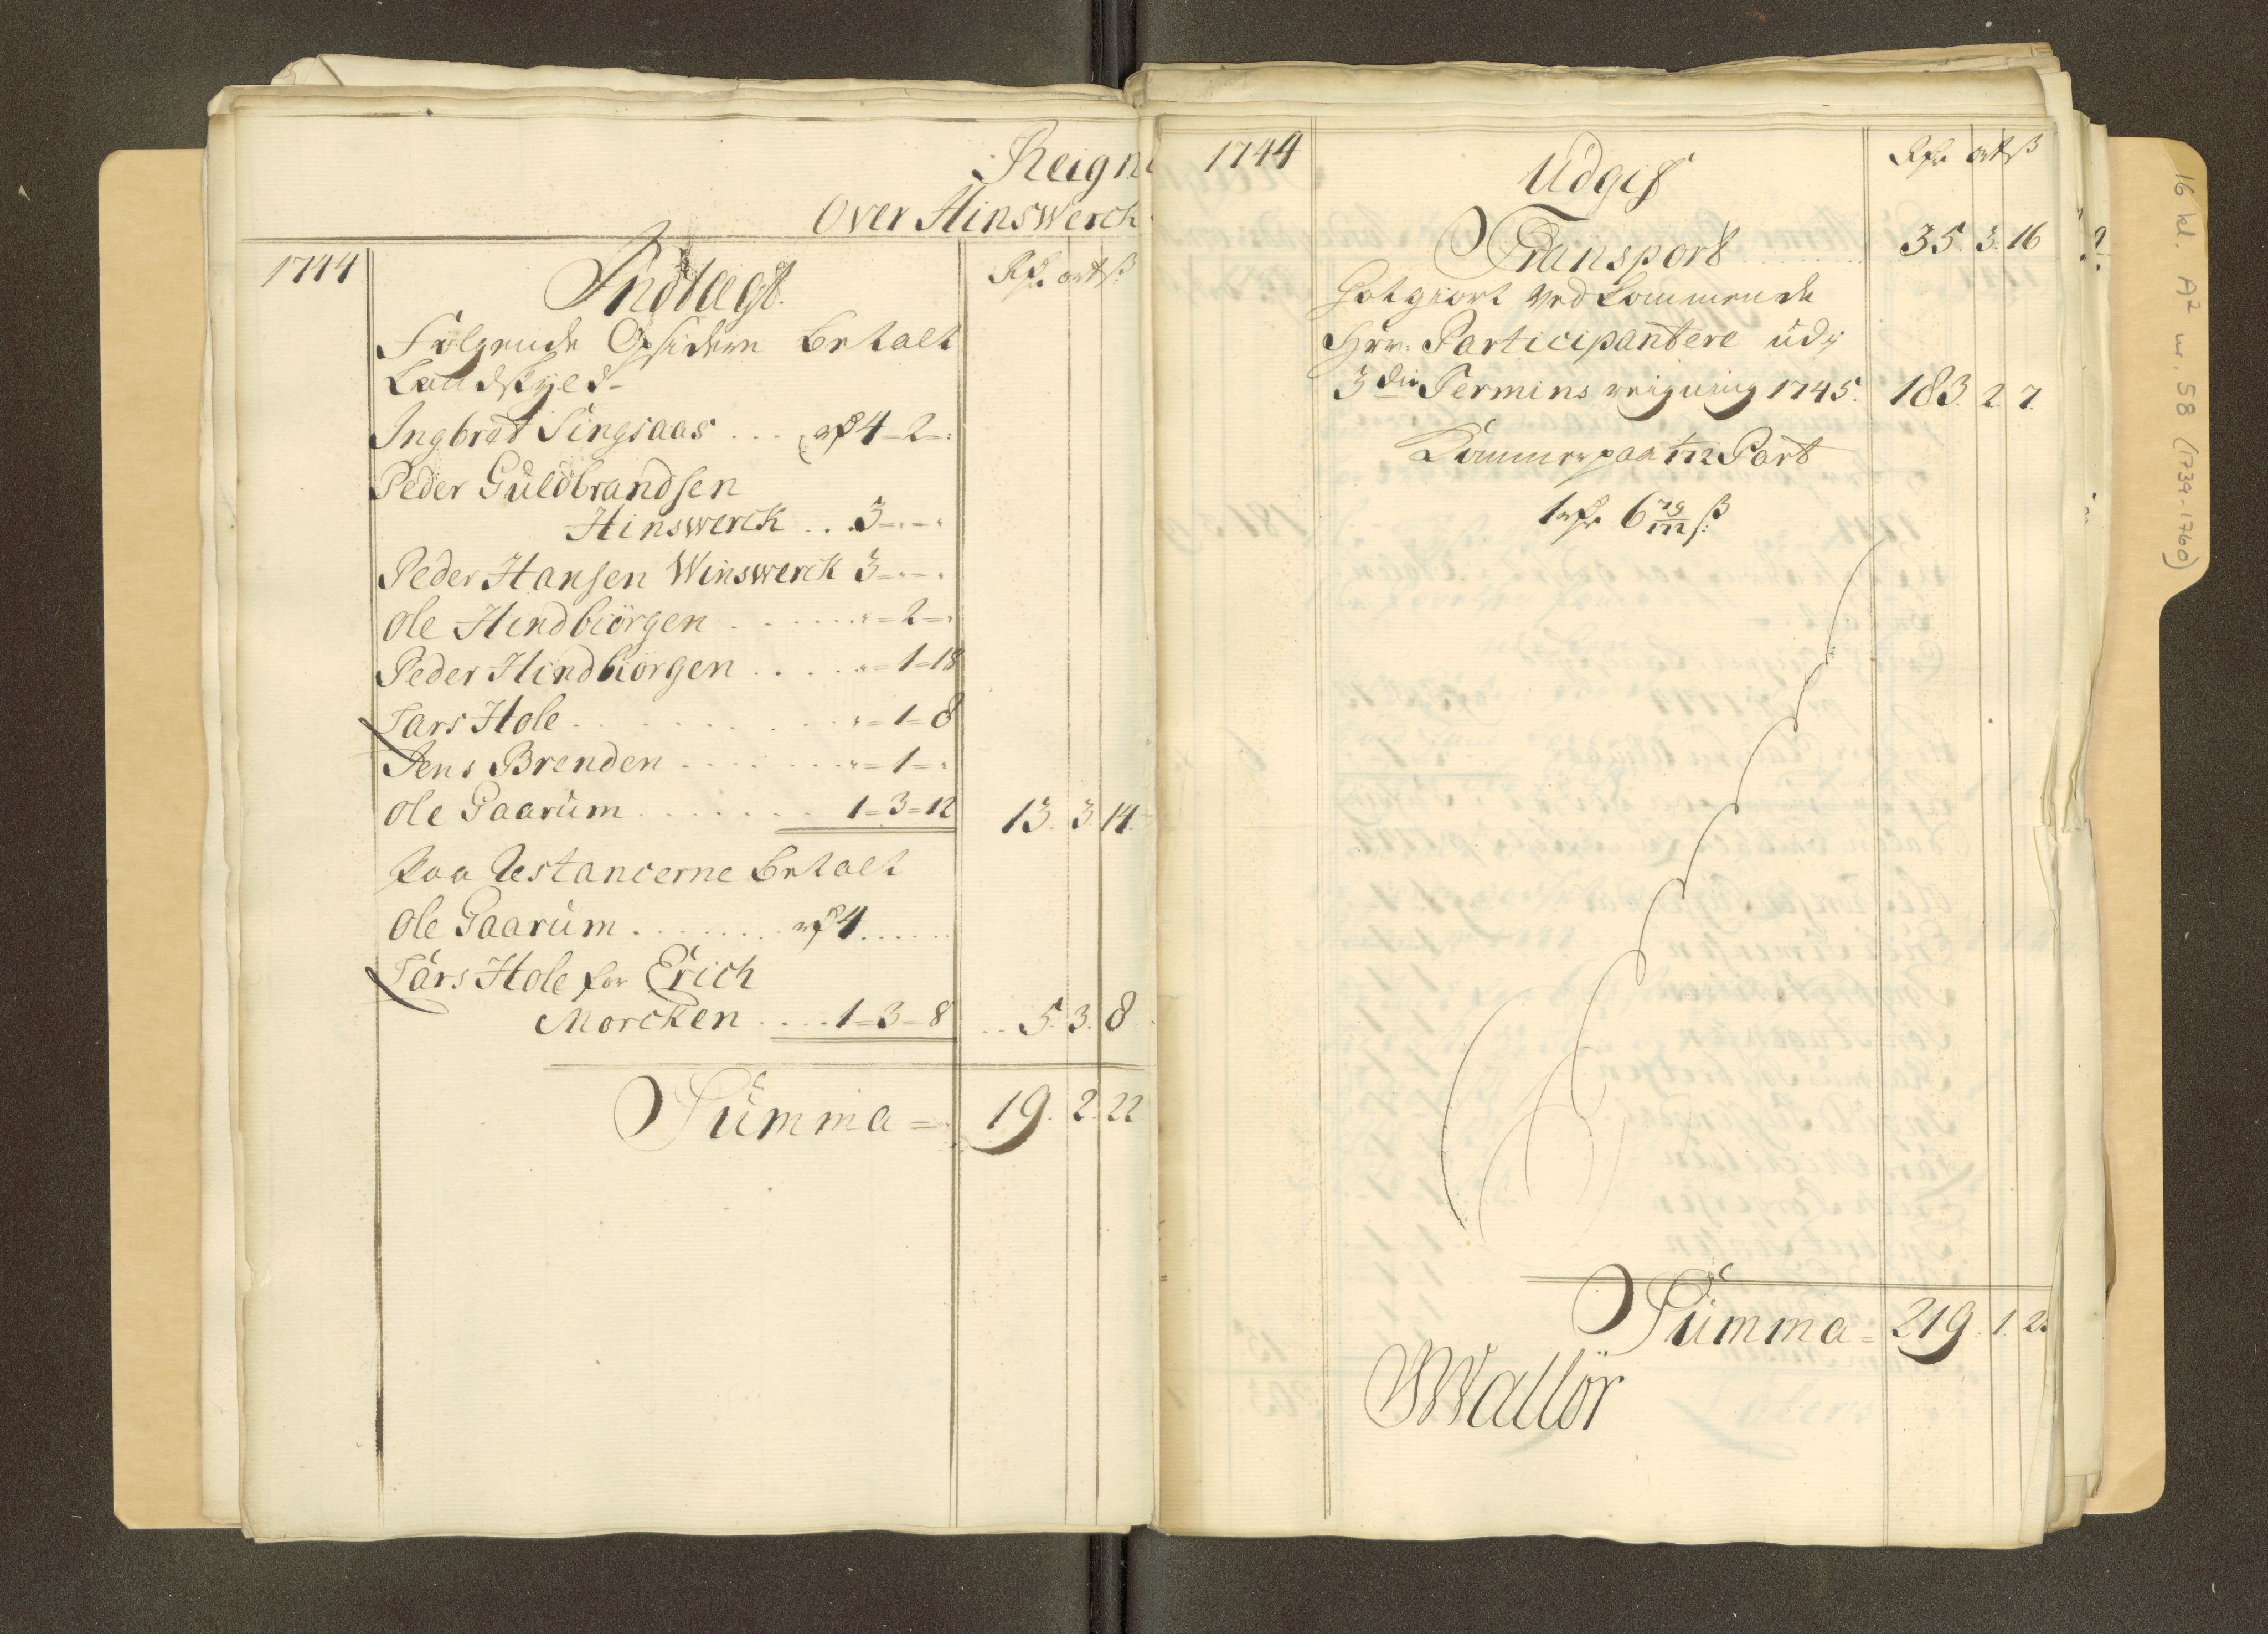 Reign
Over Hinswerck
1744
Indtægt.
Rd. ort ß
Følgende Opsidere betalt
Landskyld
Ingbrat Singsaas ... rd 4=2=
Peder Guldbrandsen
Hinswerck .. 3
Peder Hansen Winswerck 3
Ole Hindbiörgen ...... =2=
Peder Hindbiörgen .... =1=18
Lars Hole ........ =1=8
Jens Brenden ....... =1=
Ole Gaarum ....... 1=3=12 13. 3. 14.
paa Restancerne betalt
Ole Gaarum ....... rd 4 .....
Lars Hole for Erich
Morcken .... 1=3=8 .. 5. 3. 8
Summa = 19. 2. 22
1744
Udgift
Rdr ort ß
Transport ...... 35. 3. 16
Gotgiort Vedkommende
Hrr: Participantere udj
3die Termins reigning 1745. 183. 2. 7.
Kommer paa 1/172 Part
1 rdr 6 79/172 ß:
Summa = 219. 1. 2
Wallör
16 kl. A2 nr. 58 (1739-1760)